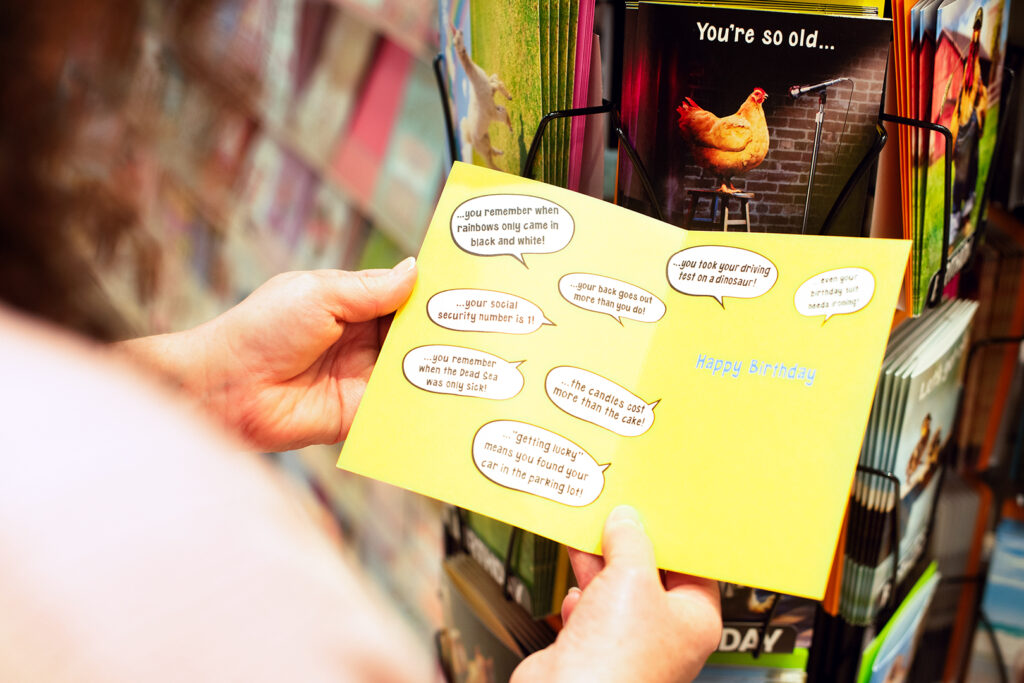 You're so old...
...you remember when
rainbows only came in
black and white!
...your social
security number is 1!
...your back goes out
more than you do!
...you remember
when the Dead Sea
was only sick!
...the candles cost
more than the cake!
..."getting lucky"
means you found your
car in the parking lot!
...you took your driving
test on a dinosaur!
even your
birthday suit
needs ironing!
Happy Birthday
DAY